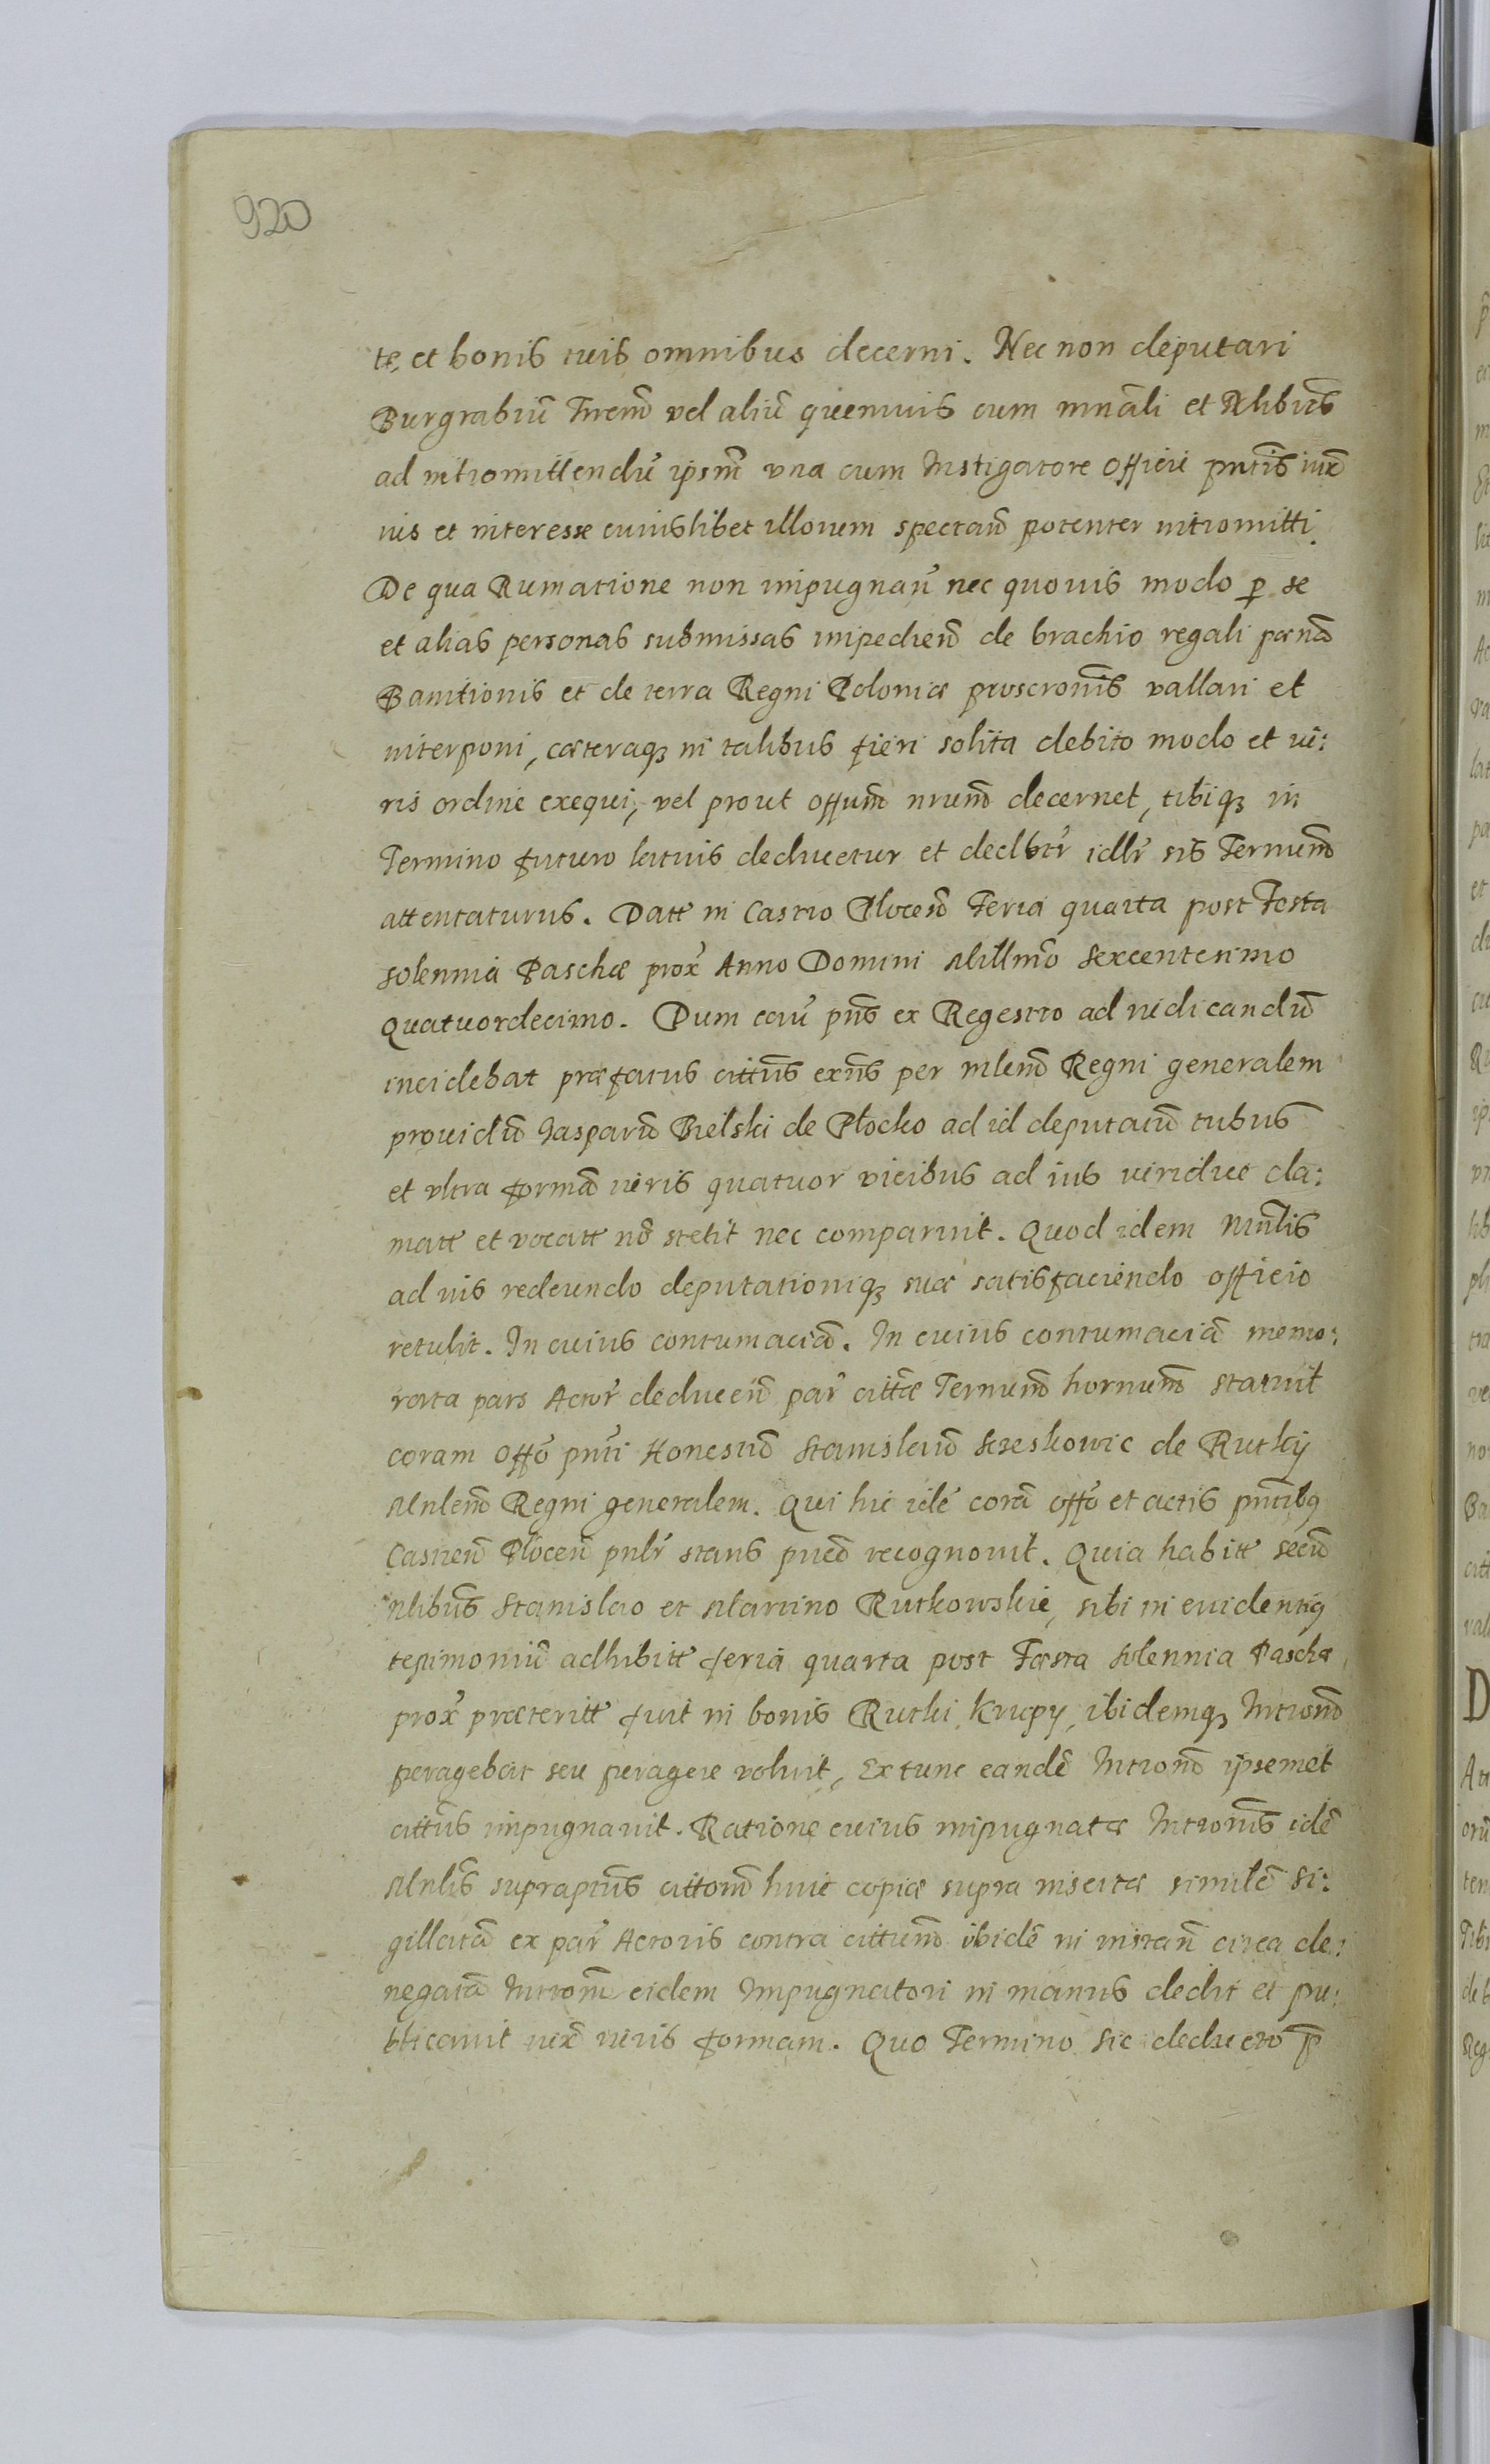 920
te, et bonis tuis omnibus decerni. Nec non deputari
Burgrabiū Trem̄ vel aliū quemuis cum mnāli et Nlibūs
ad intromittendū ipsm̄ vna cum Instigatore Officii pntīs iux̄
ius et interesse cuiuslibet illorum spectan̄ potenter intromitti.
De qua Rumatione non impugnan̄ nec quouis modo p se
et alias personas submissas impedien̄ de brachio regali pœnā
Banitionis et de terra Regni Poloniæ proscronīs vallari et
interponi, cæteraq3 in talibus fieri solita debito modo et iu:
ris ordine exequi, vel prout offum̄ nrum̄ decernet, tibiq3 in
Termino futuro latius deducetur et declbtr̄ idlr̄ sis Terminū
attentaturus. Datt in Castro Plocen̄ Feria quarta post Festa
solennia Paschæ prox̄ Anno Domini Millmō Sexcentesimo
Quatuordecimo. Dum eaīu pn̄s ex Regestro ad iudicandū
incidebat præfatus cittūs exn̄s per mlem̄ Regni generalem
prouidū Jasparū Bielski de Plocko ad id deputatū tribus
et vltra formā iuris quatuor vicibus ad ius viridice cla:
matt et vocatt nō stetit nec comparuit. Quod idem Mnlīs
ad ius redeundo deputationiq3 suæ satisfaciendo officio
retulit. In cuius contumaciā. In cuius contumaciā memo:
rata pars Actor̄ deducen̄ par̄ cittæ Terminū hornum̄ statuit
coram Offō pntī Honestū Stanislaū Szeskowic de Rutky
Mnlem̄ Regni generalem. Qui hic idē corā offō et actis pntībq
Castren̄ Plocen̄ pnlr̄ stans pmeō recognouit. Quia habitt secū
Nlibūs Stanislao et Martino Rutkowskie, sibi in euidentiq
testimoniū adhibitt feria quarta post Festa solennia Paschæ
prox̄ præteritt fuit in bonis Rutki Krupy, ibidemq3 Intronē
peragebat seu peragere voluit, Ex tunc eandē Intronē ipsemet
cittūs impugnauit. Ratione cuius impugnatæ Intronīs idē
Mnlīs suprapttūs cittonē huic copiæ supra insertæ similē si:
gillatā ex par̄ Actoris contra cittum̄ ibidē in instan̄ circa de:
negatā Intronē eidem Impugnatori in manus dedit et pu:
blicauit iux̄ iuris formam. Quo Termino sic deducto p̄